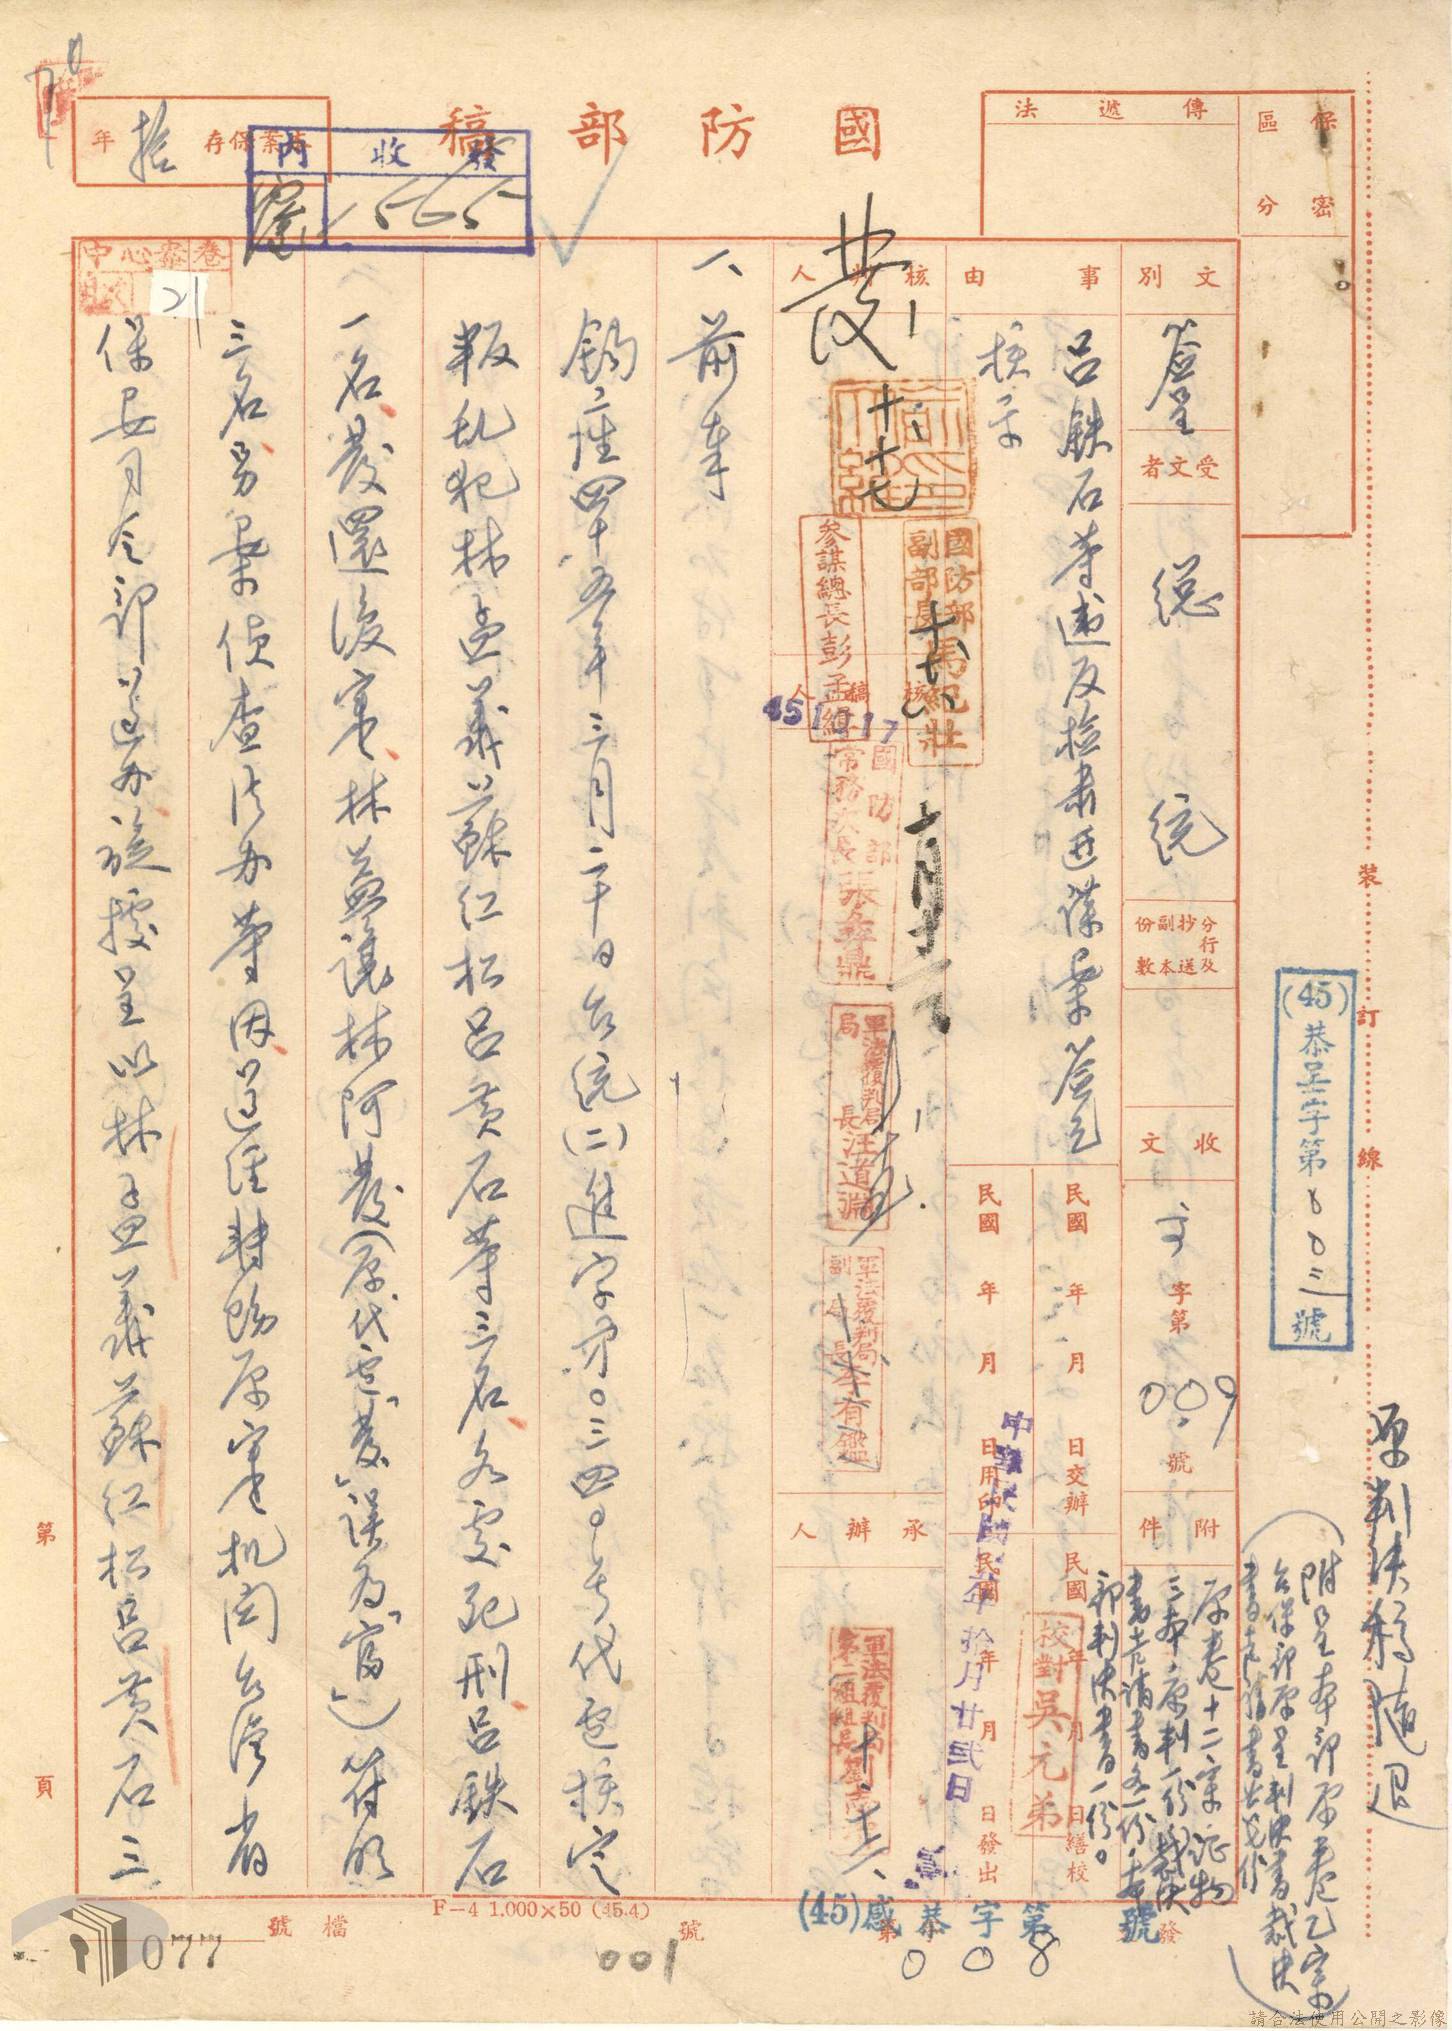 國防部稿
檔案保存 拾 年
發收內
密 1565
傳遞法
保密區分
文別 簽呈
受文者 總統
分行及抄送副本份數
收文 字第 009 號
附件
原卷十二宗證物
三本原判一份裁決
書声請書各一份本
部判決書一份。
事由
呂鉄石等違反檢肅匪諜案簽乞
核示
民國 年 月 日交辦
民國 年 月 日繕校
民國 年 月 日用印
民國 年 月 日發出
中華民國 年拾月廿貳日
校對吳元弟
核判人
發
十、十七
國防部副部長馬紀壯
參謀總長彭孟緝
451017
核稿人
國防部常務次長張彝鼎
軍法覆判局局長汪道淵
軍法覆判局副局長李有鑑
承辦人
軍法覆判局第二組組長劉志
一、前奉
鈞座四十五年三月二十日台統(二)進字第○三四○号代電核定
叛乱犯林孟義蘇仁松呂黃石等三名各處死刑呂鉄石
一名發還復審林益讓林阿發(原代電「發」誤為「富」)符旺
三名另案偵查法办等因遵經轉飭原審机関台灣省
保安司令部遵办旋據呈以林孟義蘇仁松呂黃石三
中心案卷
21
裝訂線
(45)恭呈字第八〇三號
原判決稿隨退
(附呈本部原卷乙宗
台保部原呈判決書裁決
書声請書共
第 頁
檔號
F-4 1.000×50 (45.4)
(45)感恭字第 008 號
發 號
001
077
請合法使用公開之影像